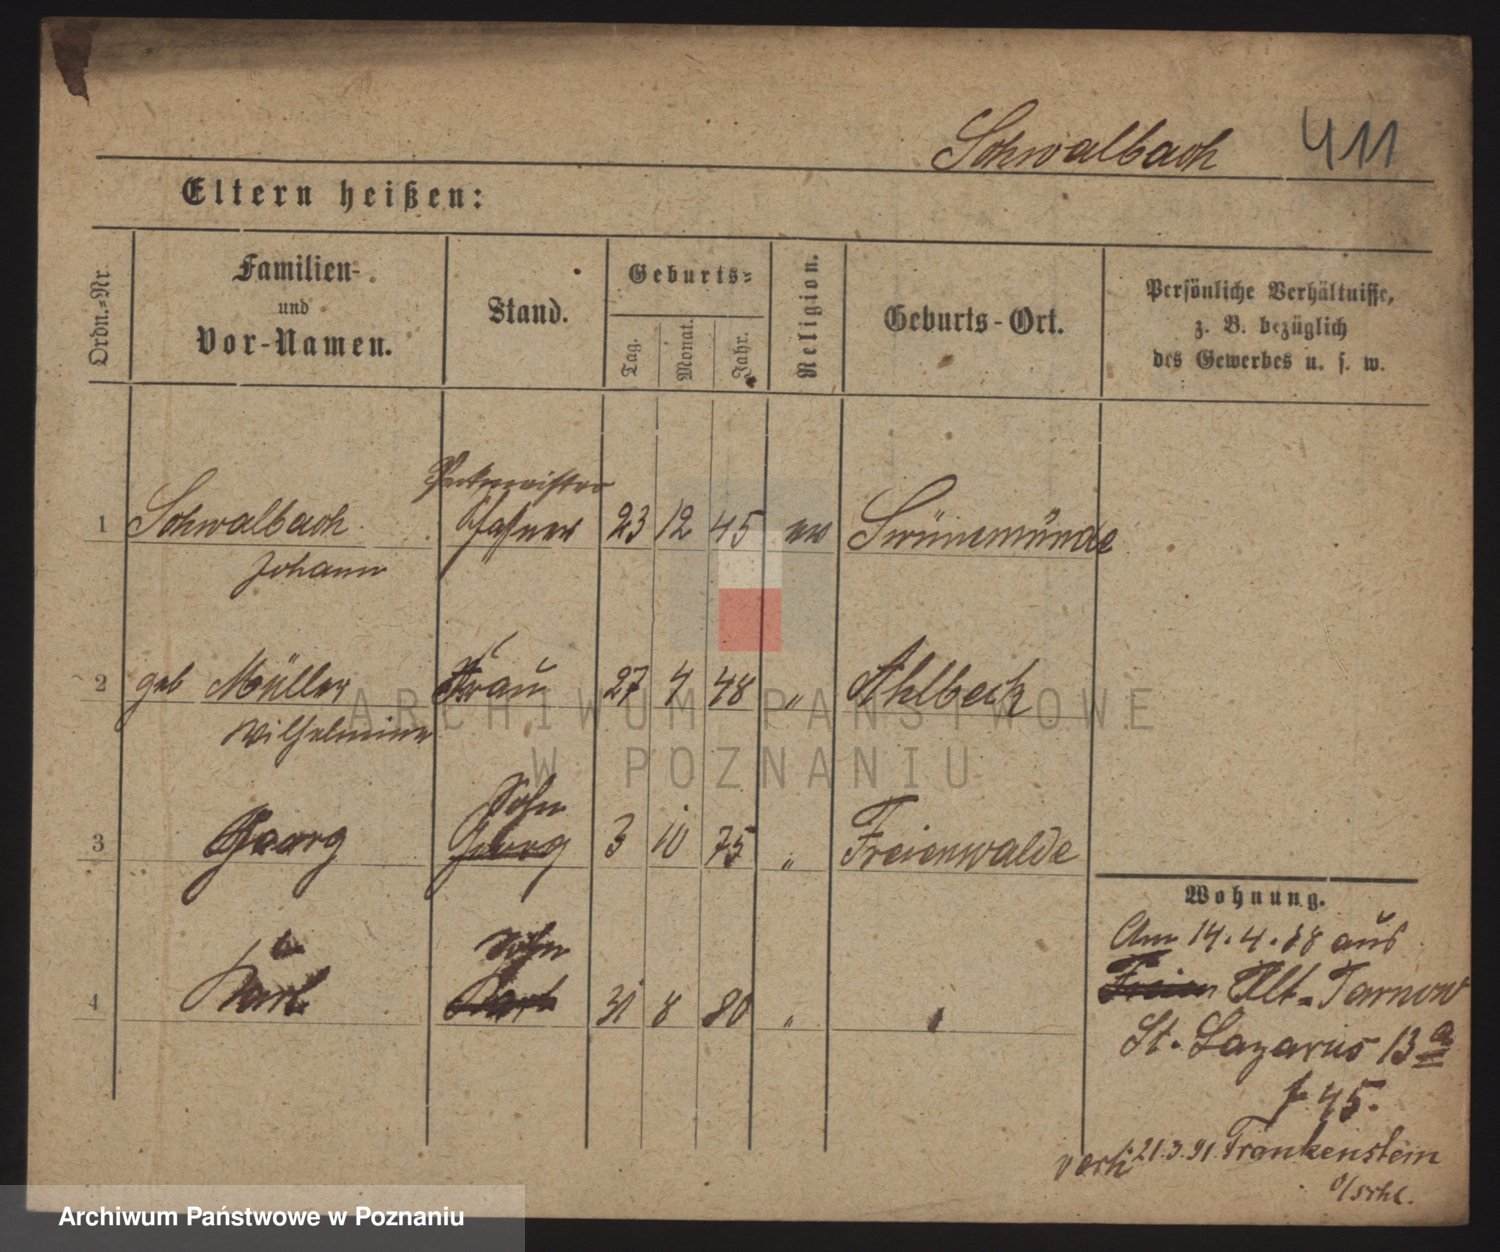 Schwalbach 411
Eltern heißen:
Ordn.-Nr.
Familien-
und
Vor-Namen.
Stand.
Geburts-
Tag.
Monat.
Jahr.
Religion.
Geburts-Ort.
Persönliche Verhältnisse,
z. B. bezüglich
des Gewerbes u. s. w.
Packmeister
1 Schwalbach Schaffner 23 12 45 ev Swinemünde
Johann
2 geb Müller Frau 27 4 48 " Ahlbeck
Wilhelmine
Sohn
3 Georg Georg 3 10 75 " Freienwalde
Sohn
4 Karl Karl 31 8 80 " "
Wohnung.
Am 14.4.88 aus
Freien Alt-Tarnow
St. Lazarus 13a
f. 45.
21.3.91 Frankenstein
ARCHIWUM PAŃSTWOWE
W POZNANIU
Archiwum Państwowe w Poznaniu